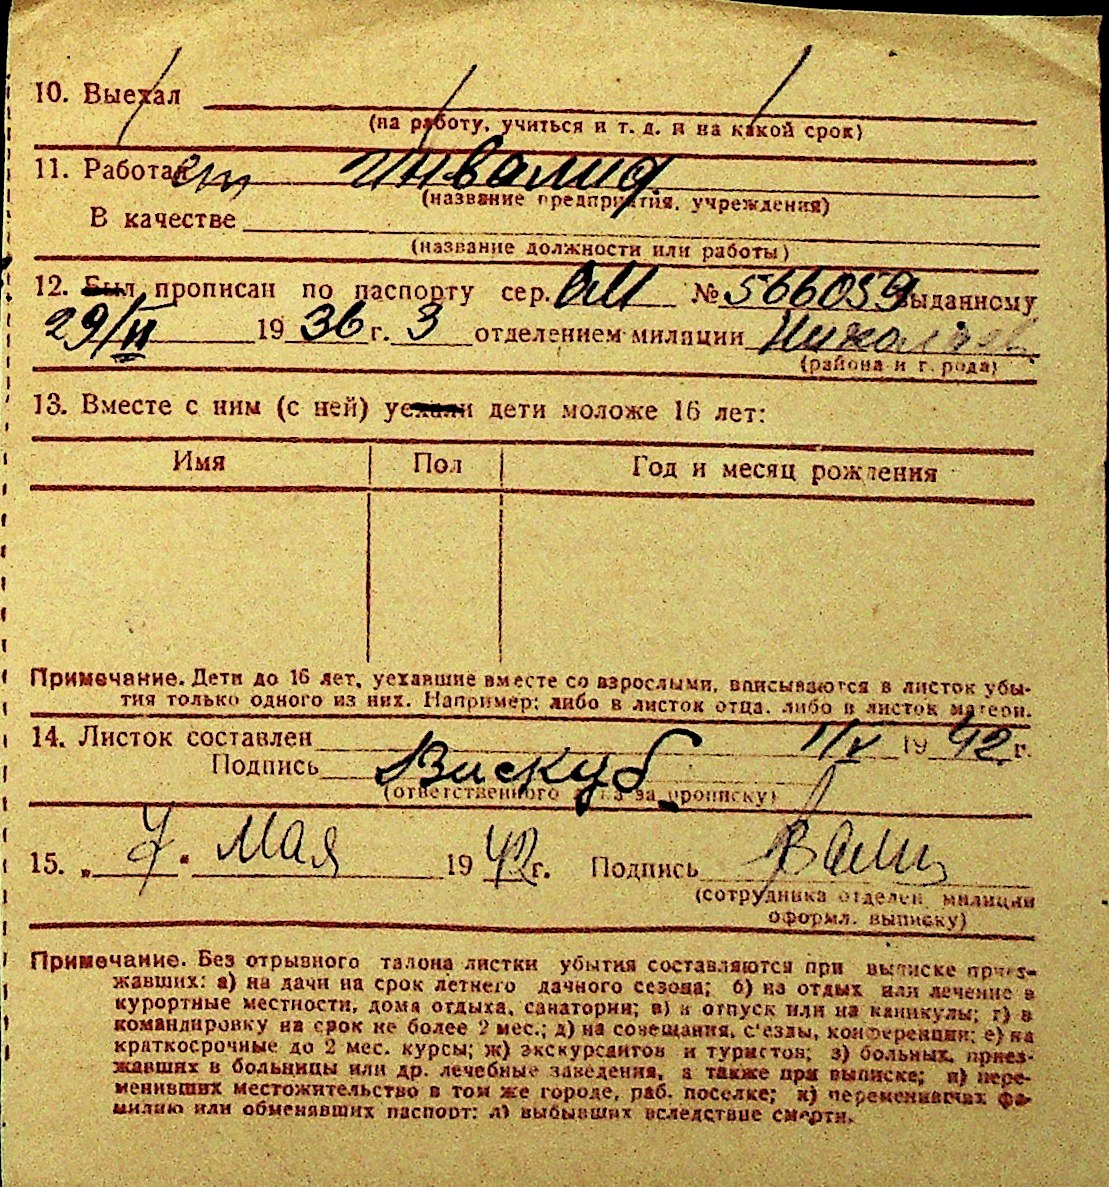 10. Выехал
(на работу, учиться и т. д. и на какой срок)
11. Работает инвалид
(название предприятия, учреждения)
В качестве
(название должности или работы)
12. Был прописан по паспорту сер. № 566059 выданному
29/II 1936 г. 3 отделением милиции
(района и города)
13. Вместе с ним (с ней) уехали дети моложе 16 лет:
Имя Пол Год и месяц рождения
Примечание. Дети до 16 лет, уехавшие вместе со взрослыми, вписываются в листок убы-
тия только одного из них. Например: либо в листок отца, либо в листок матери.
14. Листок составлен 1/V 1942 г.
Подпись
(ответственного лица за прописку)
15. „7" мая 1942 г. Подпись
(сотрудника отделен. милиции
оформл. выписку)
Примечание. Без отрывного талона листки убытия составляются при выписке приез-
жавших: а) на дачи на срок летнего дачного сезона; б) на отдых или лечение в
курортные местности, дома отдыха, санатории; в) в отпуск или на каникулы; г) в
командировку на срок не более 2 мес.; д) на совещания, с'езды, конференции; е) на
краткосрочные до 2 мес. курсы; ж) экскурсантов и туристов; з) больных, приез-
жавших в больницы или др. лечебные заведения, а также при выписке; и) пере-
менивших местожительство в том же городе, раб. поселке; к) переменивших фа-
милию или обменявших паспорт; л) выбывших вследствие смерти.